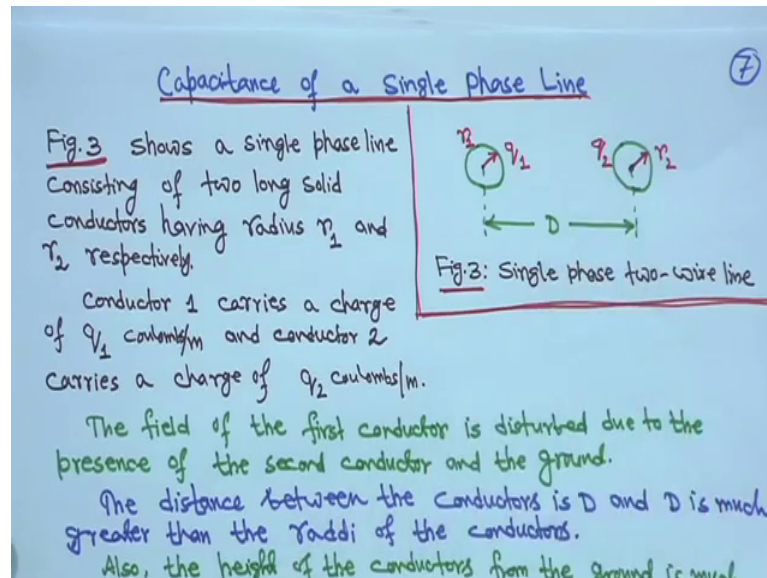 Capacitance of a Single Phase Line
7
Fig.3 shows a single phase line
consisting of two long solid
conductors having radius r1 and
r2 respectively.
r1 q1 q2 r2
D
Fig.3: Single phase two-wire line
Conductor 1 carries a charge
of q1 coulomb/m and conductor 2
carries a charge of q2 coulombs/m.
The field of the first conductor is disturbed due to the
presence of the second conductor and the ground.
The distance between the conductors is D and D is much
greater than the raddi of the conductors.
Also, the height of the conductors from the ground is much